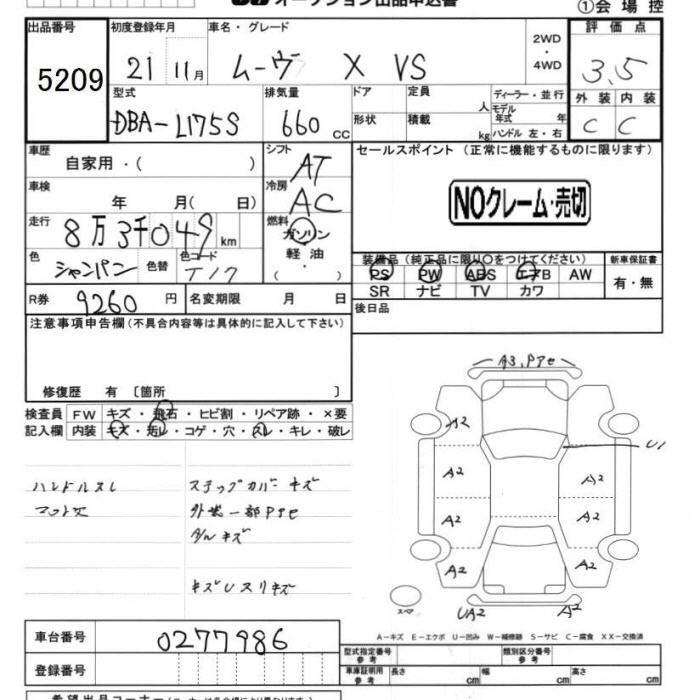 オークション出品申込書
①会場控
出品番号 初度登録年月 車名・グレード 評価点
5209 21 11月 ムーヴ X VS 2WD ・ 4WD 3.5
型式 排気量 ドア 定員 人 ディーラー・並行 外装 内装
DBA-L175S 660 cc 形状 積載 kg モデル年式 年 ハンドル 左・右 C C
車歴 自家用・( ) シフト AT セールスポイント (正常に機能するものに限ります)
車検 年 月( 日) 冷房 AC NOクレーム・売切
走行 8万3千049km 燃料 ガソリン
色 シャンパン 色替 色コード T17 軽油・ ( )
装備品(純正品に限り○をつけてください) 新車保証書
PS PW ABS エアB AW 有・無
SR ナビ TV カワ
R券 9260円 名変期限 月 日 後日品
注意事項申告欄(不具合内容等は具体的に記入して下さい)
修復歴 有 〔箇所 〕
検査員 FW キズ・飛石・ヒビ割・リペア跡・×要
記入欄 内装 キズ・汚レ・コゲ・穴・スレ・キレ・破レ
ハンドルスレ ステップカバーキズ
マット欠
キズUスリキズ
A3,Pﾊｹ
A2
U1
A2 A2
A2 A2
A2 A2
スペア UA2 A2
A-キズ E-エクボ U-凹み W-補修跡 S-サビ C-腐食 XX-交換済
車台番号 0277986
型式指定番号 参考 類別区分番号 参考
登録番号 車庫証明用 参考 長さ cm 幅 cm 高さ cm